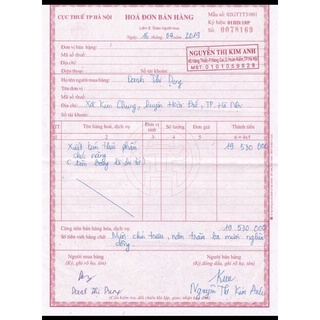 CỤC THUẾ TP HÀ NỘI
HOÁ ĐƠN BÁN HÀNG
Mẫu số: 02GTTT3/001
Ký hiệu: 01BH/18P
Số: 0078169
Liên 2: Giao người mua
Ngày 16 tháng 09 năm 2019
Đơn vị bán hàng:
NGUYỄN THỊ KIM ANH
MST: 0101059829
Mã số thuế:
Địa chỉ:
Số tài khoản:
Điện thoại:
Họ tên người mua hàng: Danh Thị Dung
Đơn vị:
Mã số thuế:
Địa chỉ: Xã Kim Chung, huyện Hoài Đức, TP Hà Nội
Số tài khoản:
STT Tên hàng hoá, dịch vụ Đơn vị tính Số lượng Đơn giá Thành tiền
1 2 3 4 5 6=4x5
Xuất bán thực phẩm 19 530 000
chức năng
Cộng tiền bán hàng hóa, dịch vụ: 19 530 000
Số tiền viết bằng chữ: Mười chín triệu, năm trăm ba mươi nghìn
đồng
Người mua hàng
(Ký, ghi rõ họ, tên)
Người bán hàng
(Ký, đóng dấu, ghi rõ họ, tên)
Danh Thị Dung
Nguyễn Thị Kim Anh
(Cần kiểm tra, đối chiếu khi lập, giao, nhận hoá đơn)